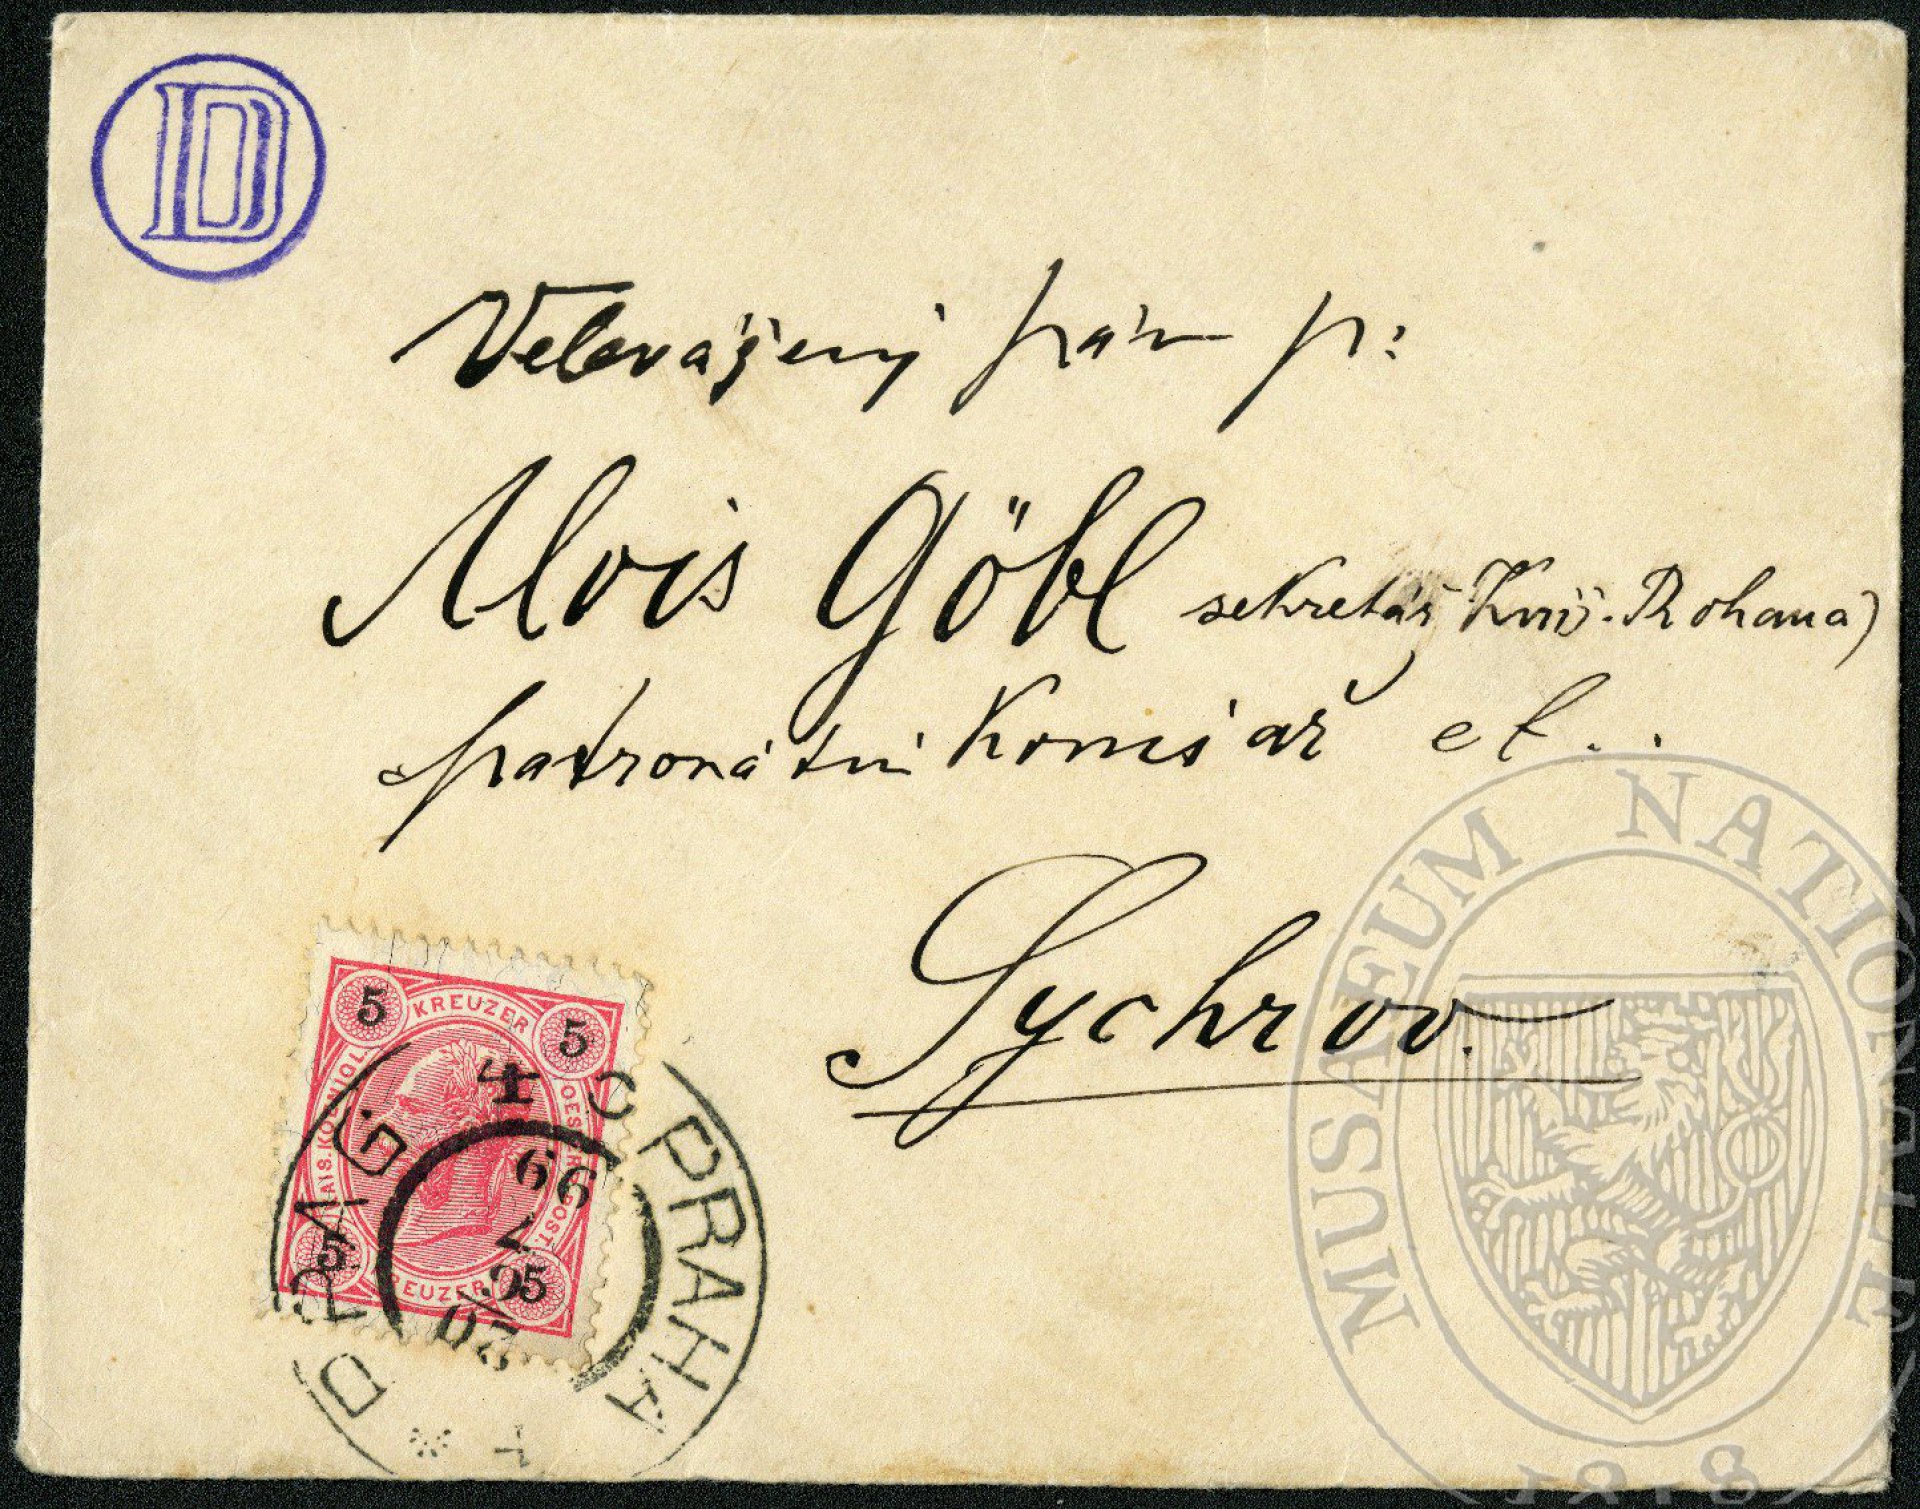 D
Velevážený pán p:
Alois Göbl sekretář Kníž. Rohana)
patronátní Komisař et..
Sychrov.
5 KREUZER 5
KAIS. KÖNIGL. OESTERR. POST.
5 KREUZER 5
PRAG PRAHA
MUSAEUM NATIONALE
1818